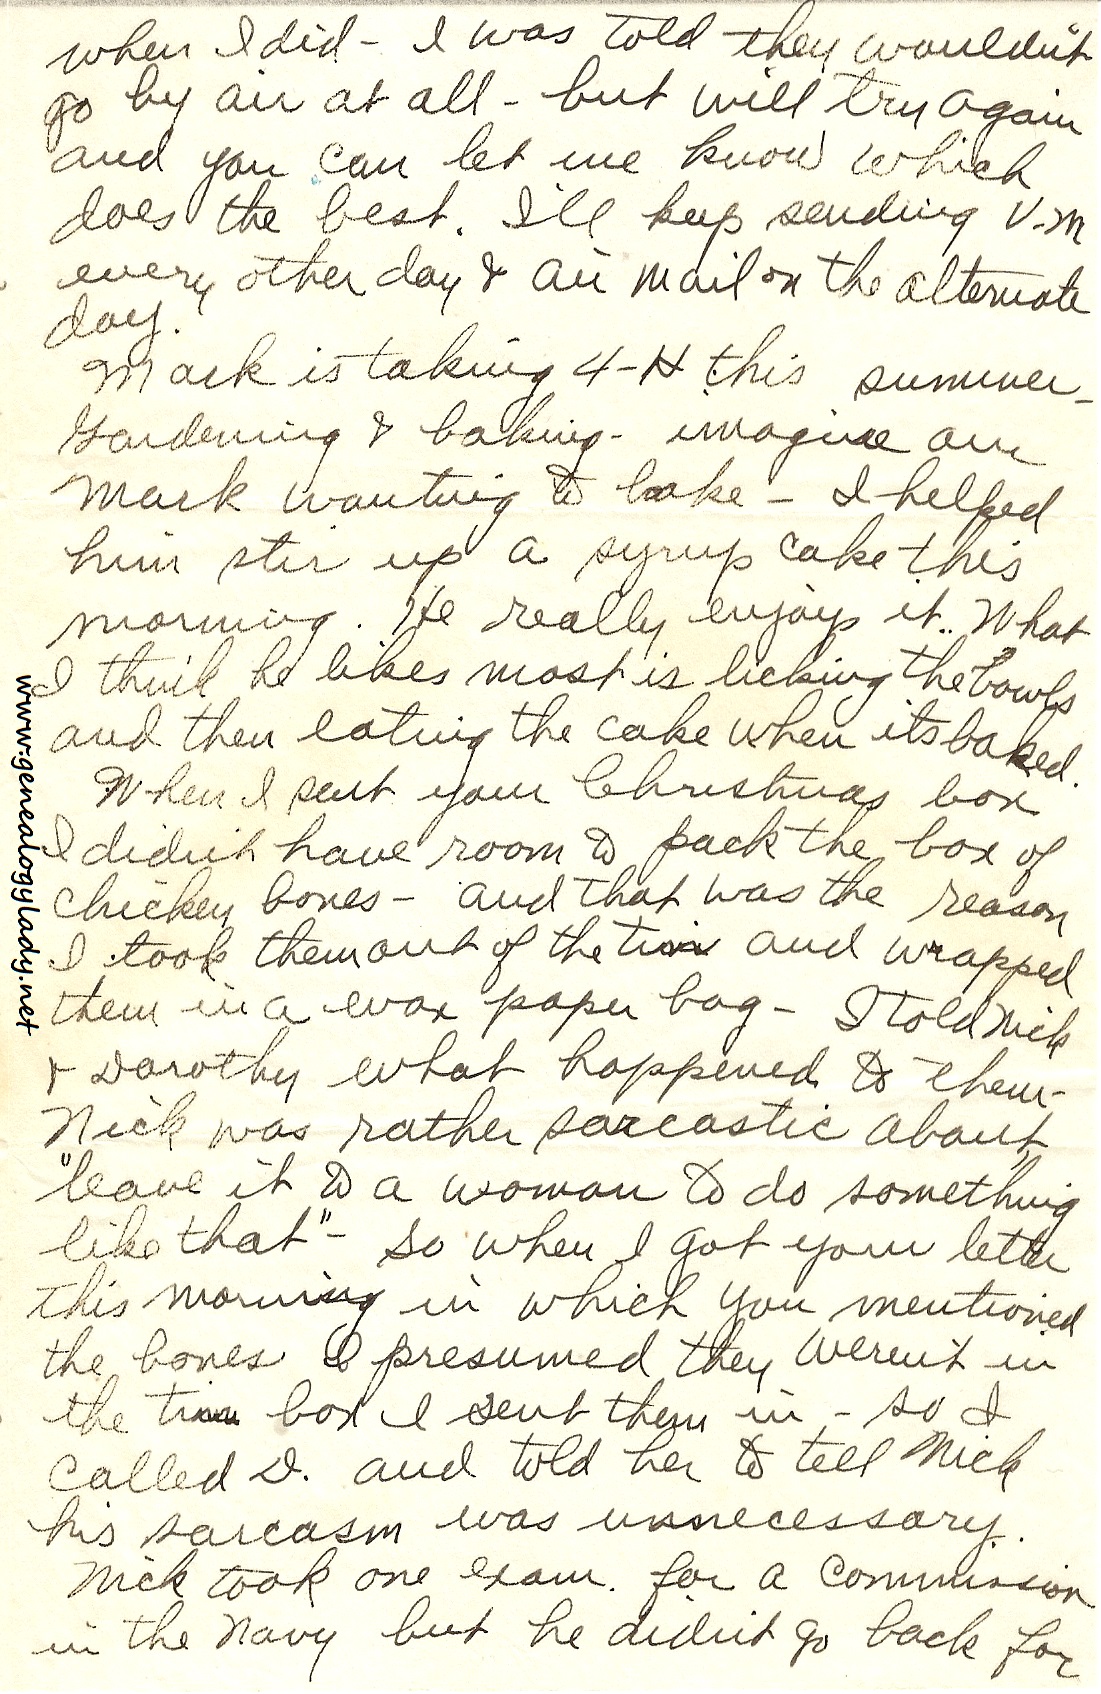 when I did – I was told they wouldn't
go by air at all – but will try again
and you can let me know which
does the best. I'll keep sending V-M
every other day & air mail on the alternate
day.
Mark is taking 4-H this summer –
Gardening & baking – imagine our
Mark wanting to bake – I helped
him stir up a syrup cake this
morning. He really enjoys it.. What
I think he likes most is licking the bowls
and then eating the cake when its baked.
When I sent your Christmas box
I didn't have room to pack the box of
chickey bones – and that was the reason
I took them out of the tin and wrapped
them in a wax paper bag – I told Nick
& Dorothy what happened to them –
Nick was rather sarcastic about,
"leave it to a woman to do something
like that" – So when I got your letter
this morning in which you mentioned
the bones I presumed they weren't in
the tin box I sent them in – so I
called D. and told her to tell Nick
his sarcasm was unnecessary.
Nick took one exam. for a commission
in the Navy but he didn't go back for
www.genealogylady.net